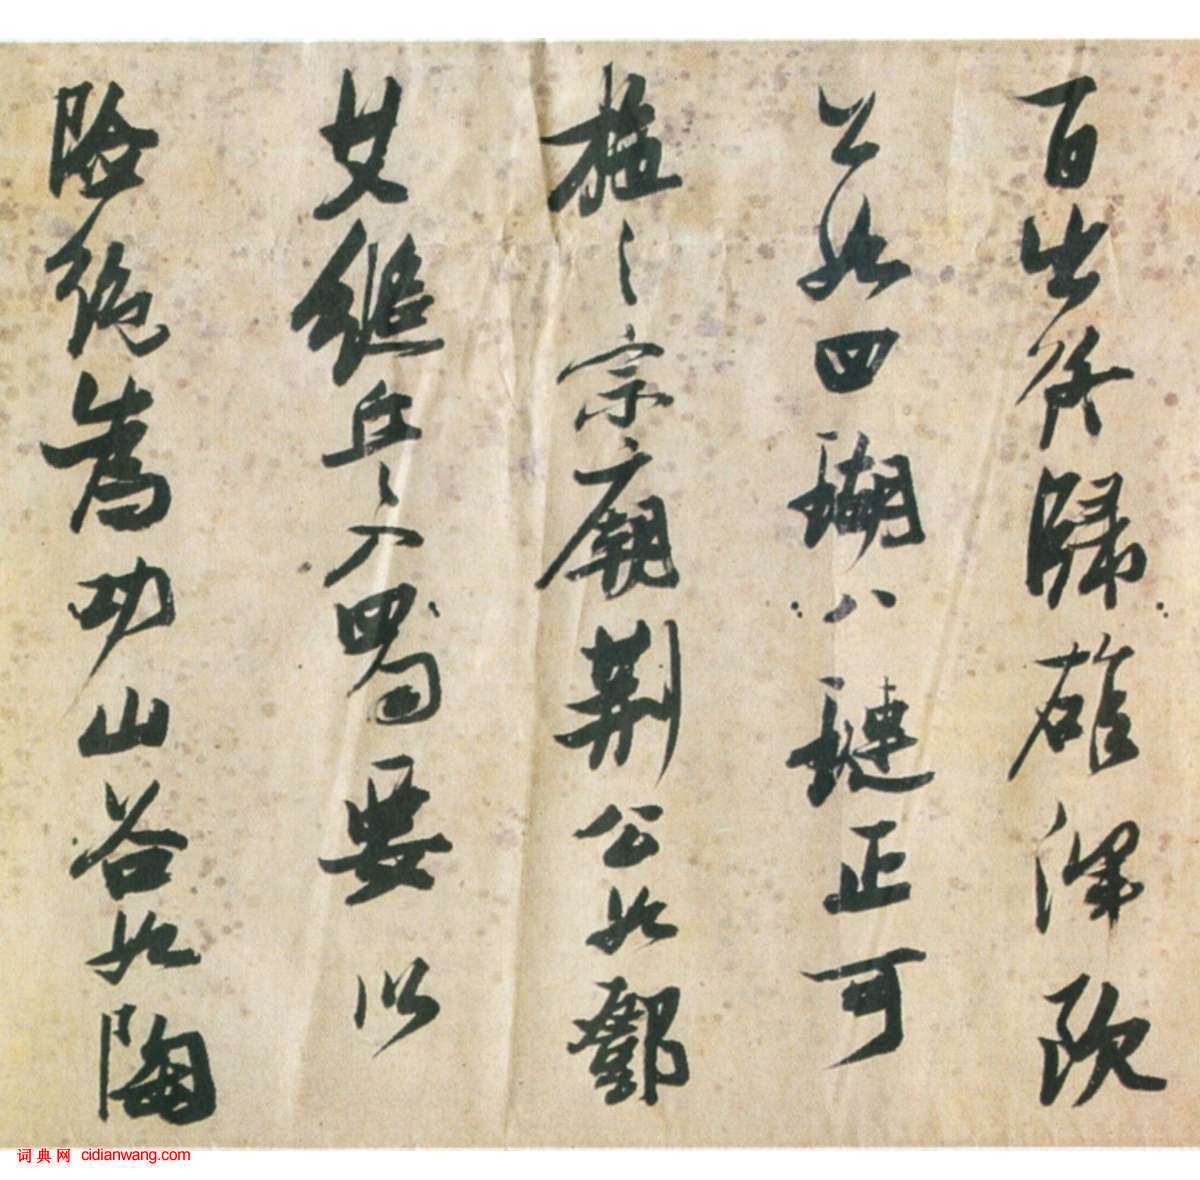 百出終歸雄渾欧
公如四瑚八璉正可
施之宗廟荆公如鄧
艾縋兵入蜀要以
險絶為功山谷如陶
词典网 cidianwang.com